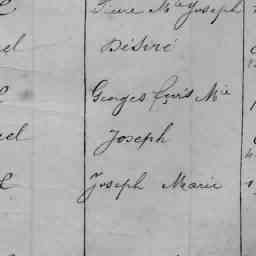 Pierre Mie Joseph
el
Désiré
Georges Frçois Mie
el
Joseph
Joseph Marie